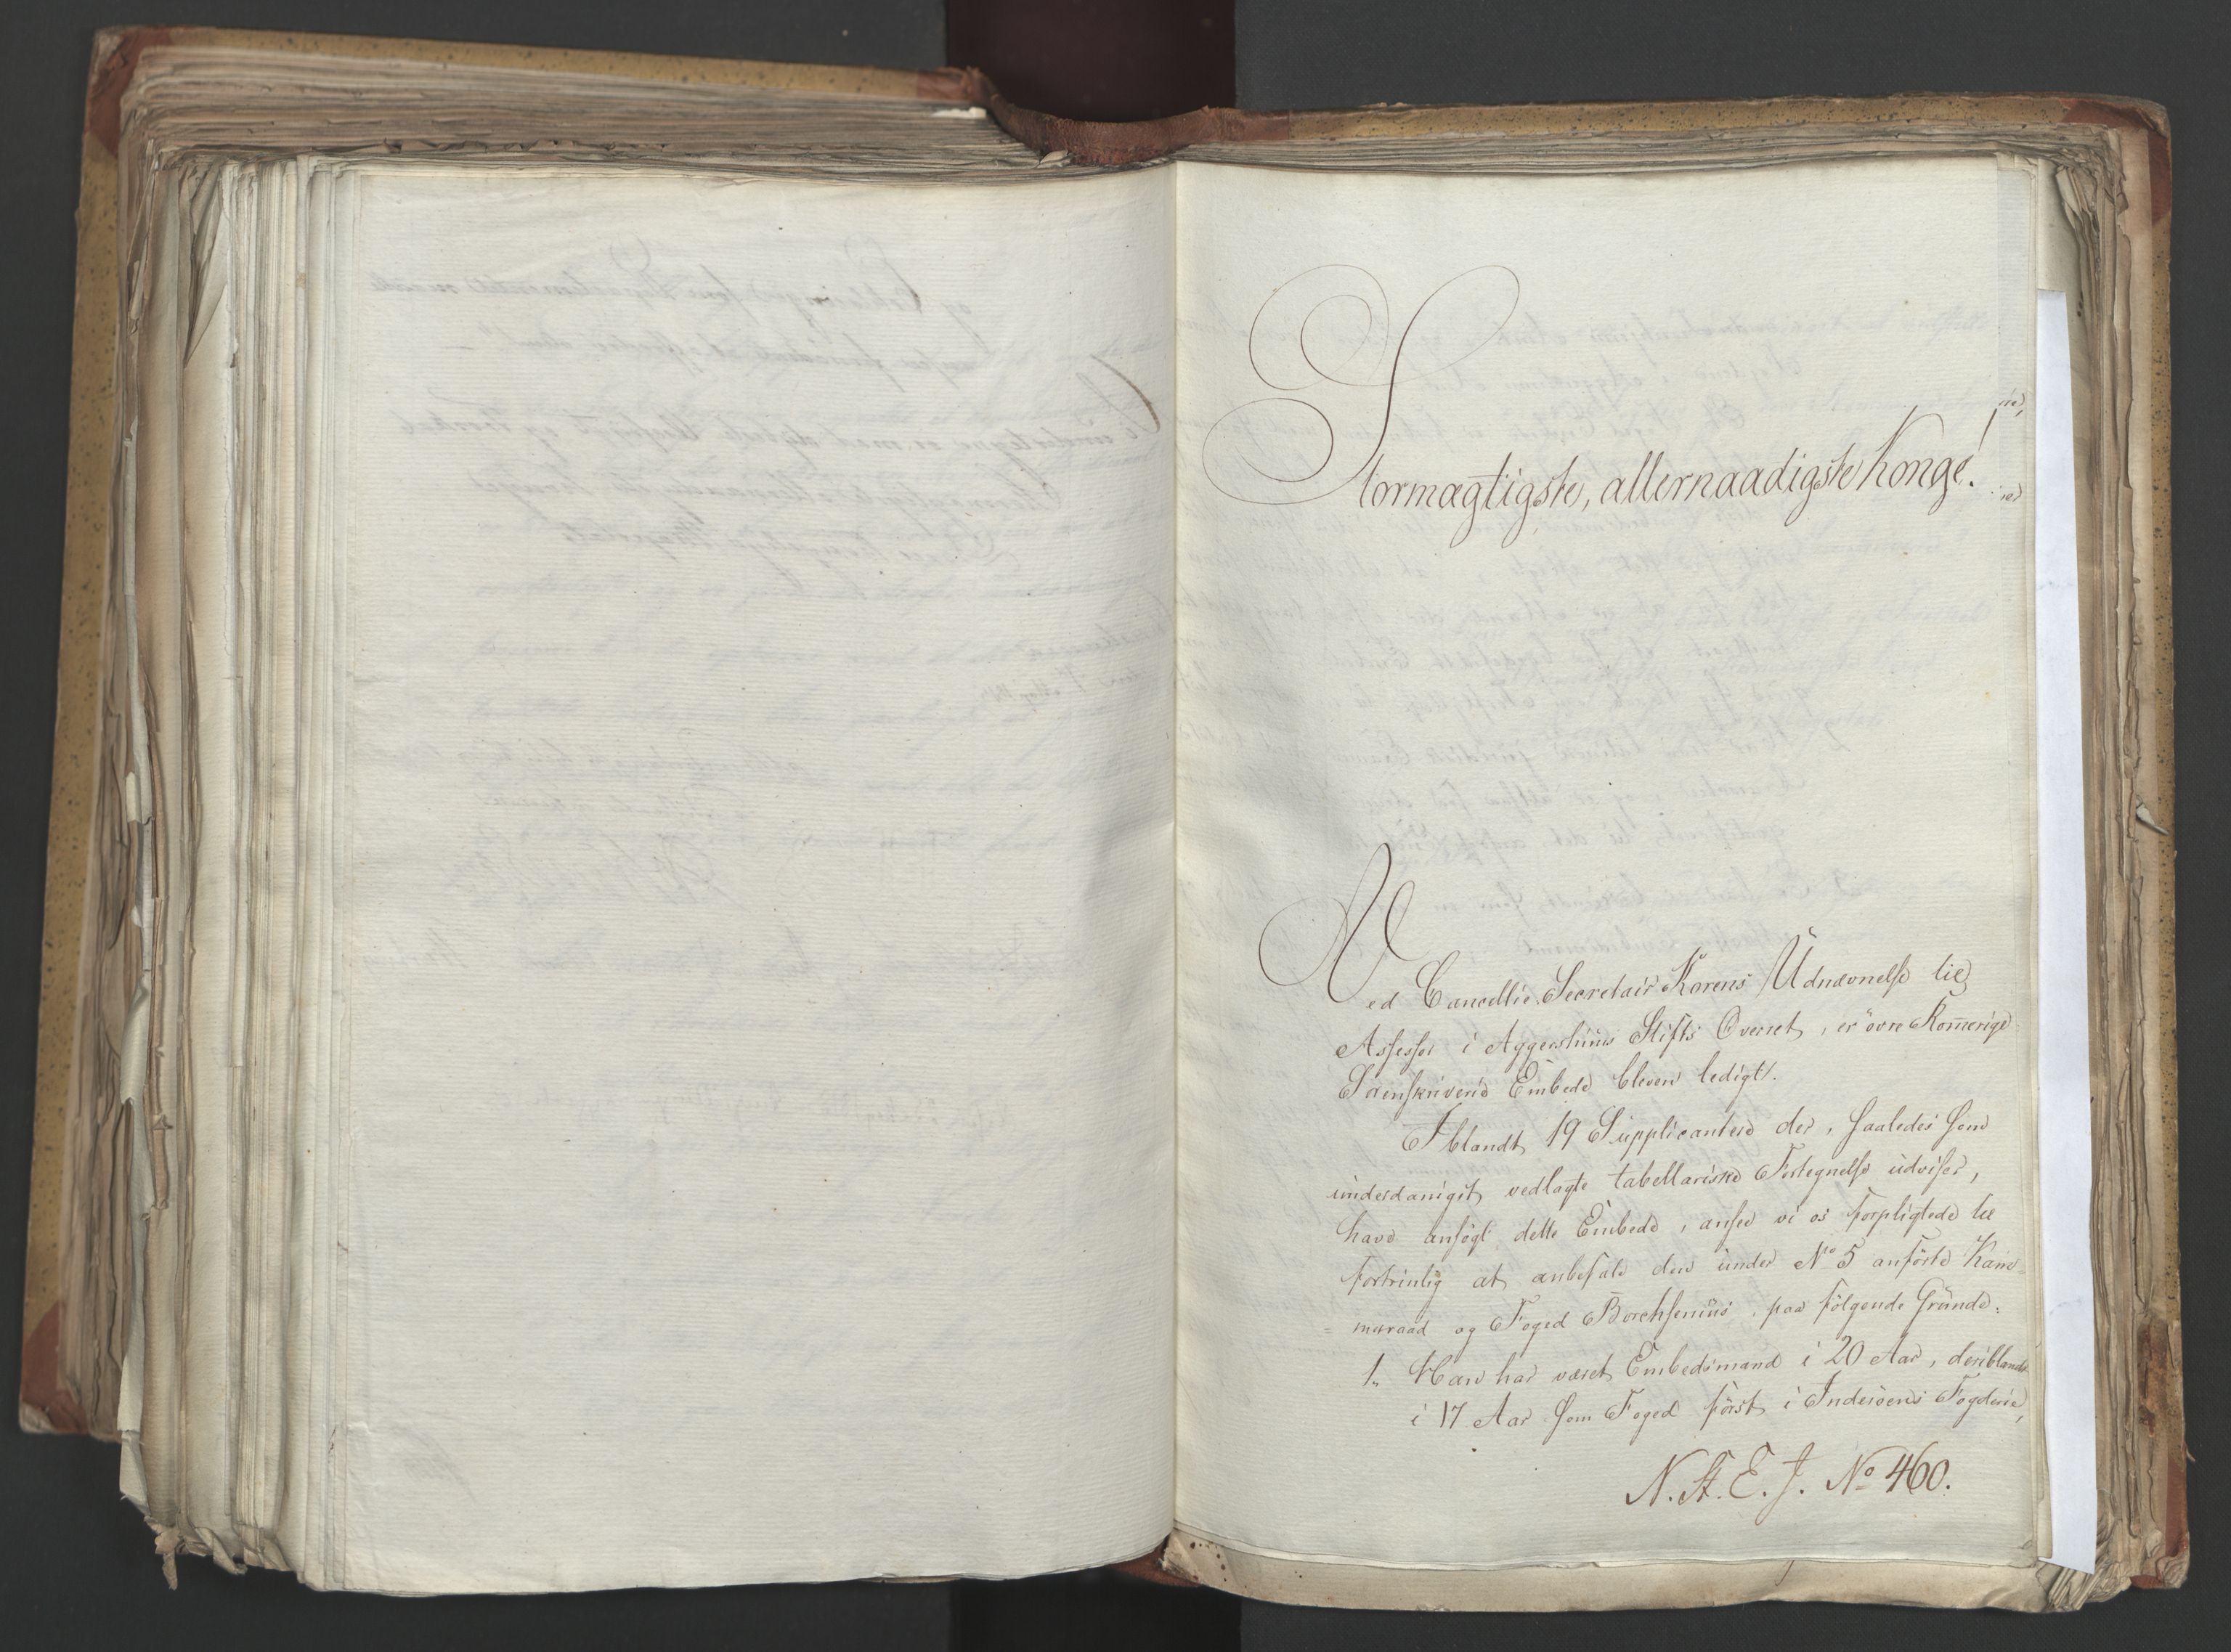 Stormægtigste, allernaadigste Konge!
Ved Cancellie Secretair Korens Udnævnelse til
Assessor i Aggershuus Stifts Overret, er övre Romerige
Sorenskriverie Embede bleven ledigt.
Iblandt 19 Supplicantere der, saaledes som
underdanigst vedlagte tabellariske Fortegnelse udviser,
have ansögt dette Embede, ansee vi os forpligtede til
fortrinlig at anbefale den under No 5 anförte Kam-
=merraad og Foged Borchsenius, paa fölgende Grunde:
1. Han har været Embedsmand i 20 Aar, deriblandt
i 17 Aar som Foged först i Inderöens Fogderie,
N. A. E. J. No 460.